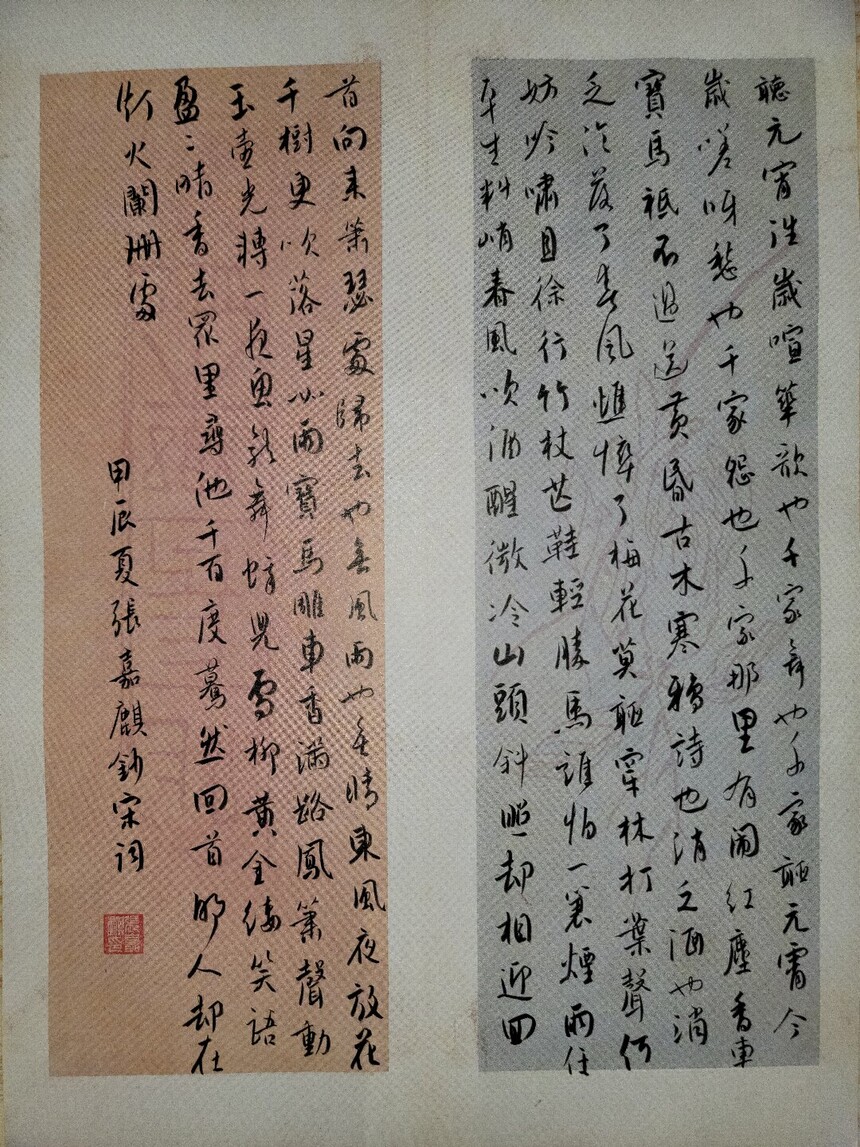 聽元宵往歲喧華歌也千家舞也千家聽元宵今
歲嗟呀愁也千家怨也千家那里有鬧紅塵香車
寶馬祗不過送黃昏古木寒鴉詩也消乏酒也消
乏冷落了春風憔悴了梅花莫聽穿林打葉聲何
妨吟嘯且徐行竹杖芒鞋輕勝馬誰怕一蓑煙雨任
平生料峭春風吹酒醒微冷山頭斜照却相迎回
首向來蕭瑟處歸去也無風雨也無晴東風夜放花
千樹更吹落星如雨寶馬雕車香滿路鳳簫聲動
玉壺光轉一夜魚龍舞蛾兒雪柳黃金縷笑語
盈〻暗香去眾里尋他千百度驀然回首那人却在
灯火闌珊處
甲辰夏張嘉麒鈔宋詞